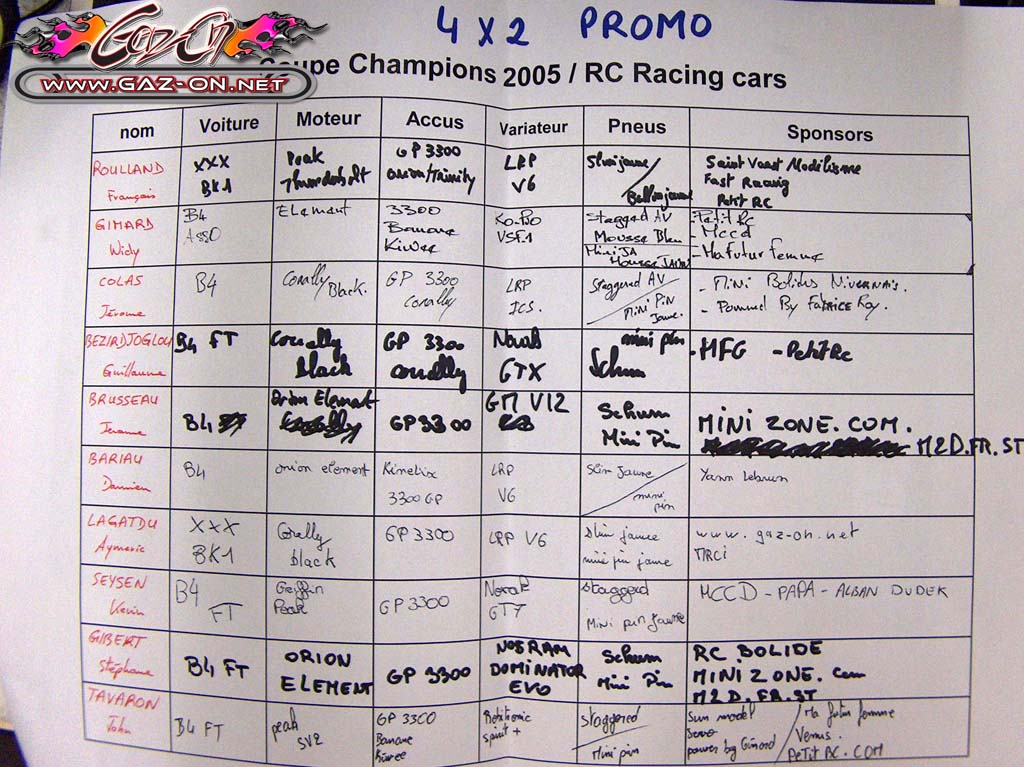 4 X 2 PROMO
Gaz-On
www.GAZ-ON.NET
Coupe Champions 2005 / RC Racing cars
nom Voiture Moteur Accus Variateur Pneus Sponsors
ROULLAND XXX Peak GP 3300 LRP Slim jaune/ Saint Vaast Modélisme
Français BK1 Thunderbolt orion/Trinity V6 Ballon jaune Fast Racing
Petit RC
GIMARD B4 Element 3300 Ko-Po Staggred AV - Petit RC
Widy Asso Banane VSF1 Mousse Bleu - Mccd
Kiwee Mini JA - Ma Futur femme
COLAS B4 Corally/Black. GP 3300 LRP Staggered AV/ - Mini Bolides Nivernais.
Jérome Corally ICS. Mini Pin Jaune. - Powered By Fabrice Roy.
BEZIRDJOGLOU B4 FT Corally GP 3300 Novak mini pin - MFG - Petit Rc
Guillaume black corally GTX Schum
BRUSSEAU B4 Orion Element GP3300 GM V12 Schum MINI ZONE.COM.
Jerome Mini Pin M2D.FR.ST
BARIAU B4 orion element Kinetix LRP Slim Jaune/ Yann Lebrun
Damien 3300 GP V6 mini pin
LAGATDU XXX Corally GP 3300 LRP V6 Slim jaune www.gaz-on.net
Aymeric BK1 black mini pin jaune MRCi
SEYSEN B4 Griffin GP 3300 Novak Staggerd MCCD - PAPA - ALBAN DUDEK
Kevin FT Peak GT7 Mini pin Jaune
GILBERT B4 FT ORION GP 3300 NOSRAM Schum RC BOLIDE
Stéphane ELEMENT DOMINATOR Mini Pin MINI ZONE. Com
EVO M2D.FR.ST
TAVARON B4 FT peak GP 3300 spirit + staggered/ Sun model / Ma futur femme
John SV2 Banane Mini pin Servo Venus.
Kiwee power by Gimard PETIT RC.COM